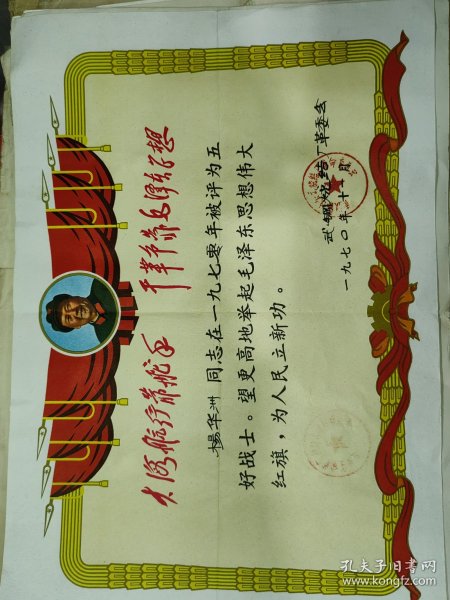 大海航行靠舵手 干革命靠毛泽东思想
楊华洲 同志在一九七零年被评为五
好战士。望更高地举起毛泽东思想伟大
红旗，为人民立新功。
武钢烧结厂革委会
一九七〇年十一月
孔夫子旧书网
www.kongfz.com